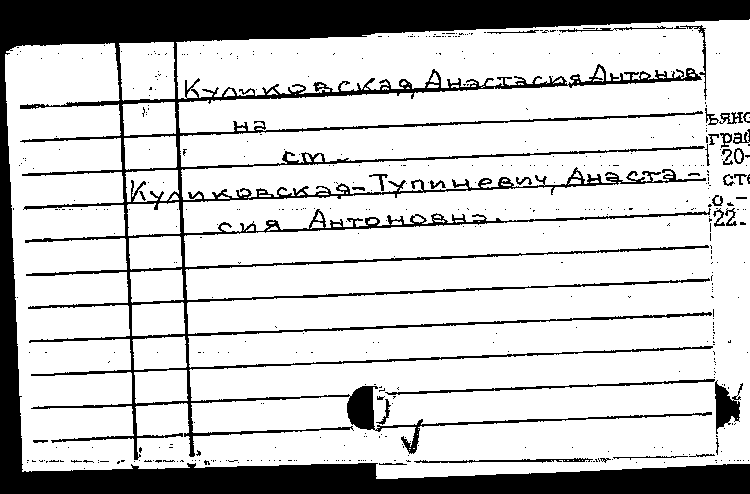 Куликовская, Анастасия Антонов-
на
см.
Куликовская-Тупиневич, Анаста-
сия Антоновна.
20-
о.-
22.